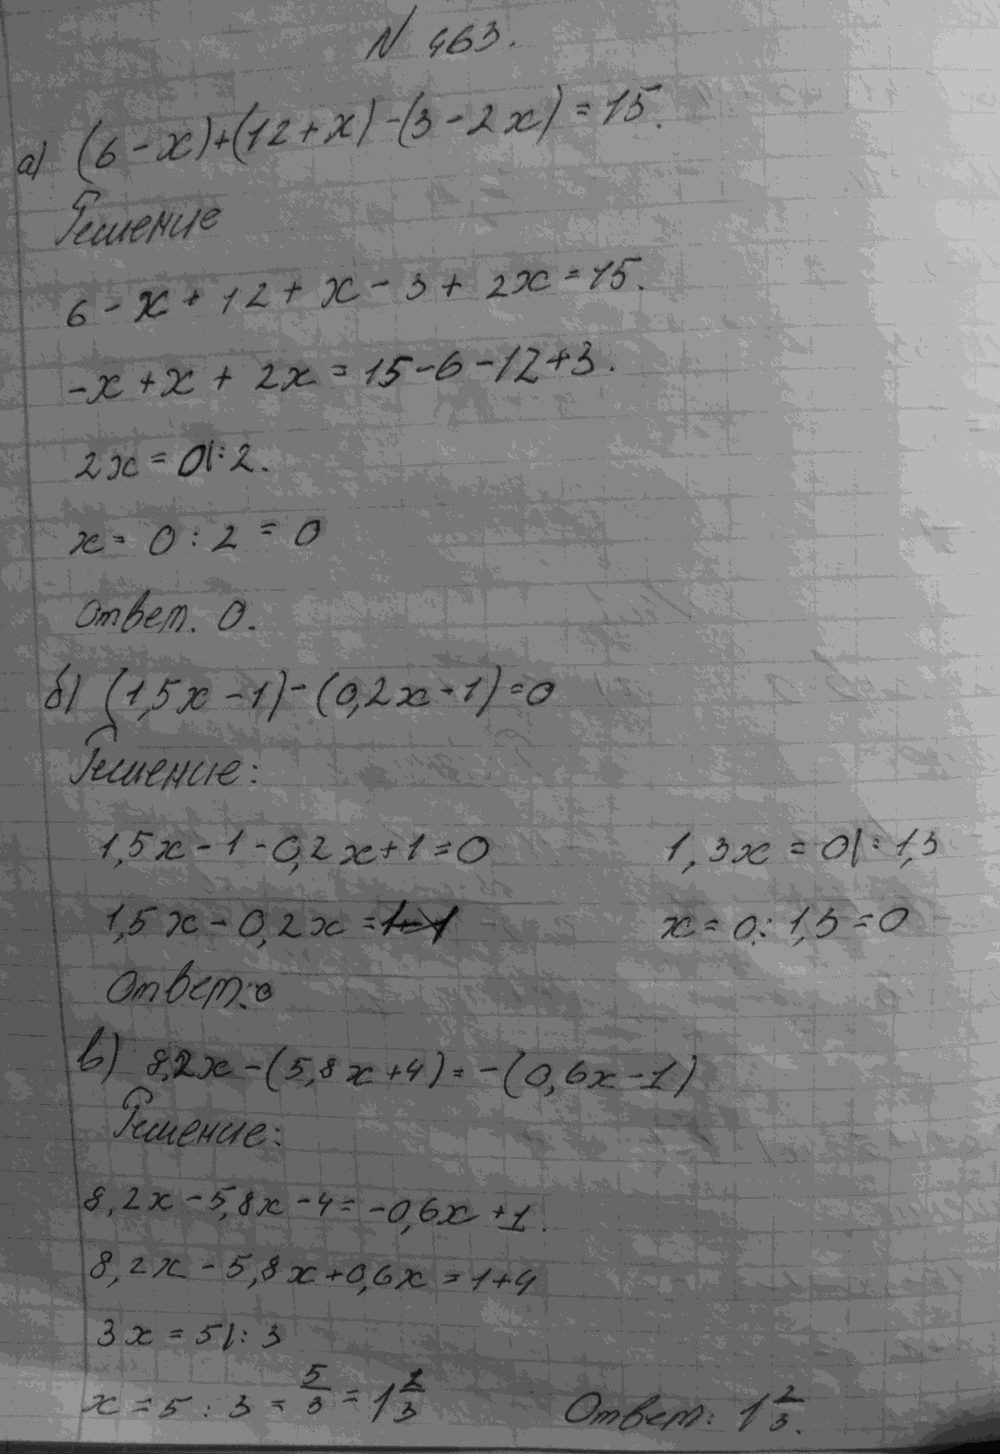 N 463.
а) (6-x)+(12+x)-(3-2x)=15.
Решение
6-x+12+x-3+2x=15.
-x+x+2x=15-6-12+3.
2x=0|:2.
x=0:2=0
Ответ. 0.
б) (1,5x-1)-(0,2x-1)=0
Решение:
1,5x-1-0,2x+1=0
1,5x-0,2x=1-1
1,3x=0|:1,3
x=0:1,3=0
Ответ:0
в) 8,2x-(5,8x+4)=-(0,6x-1)
Решение:
8,2x-5,8x-4=-0,6x+1.
8,2x-5,8x+0,6x=1+4
3x=5|:3
x=5:3=5/3=1 2/3
Ответ: 1 2/3.